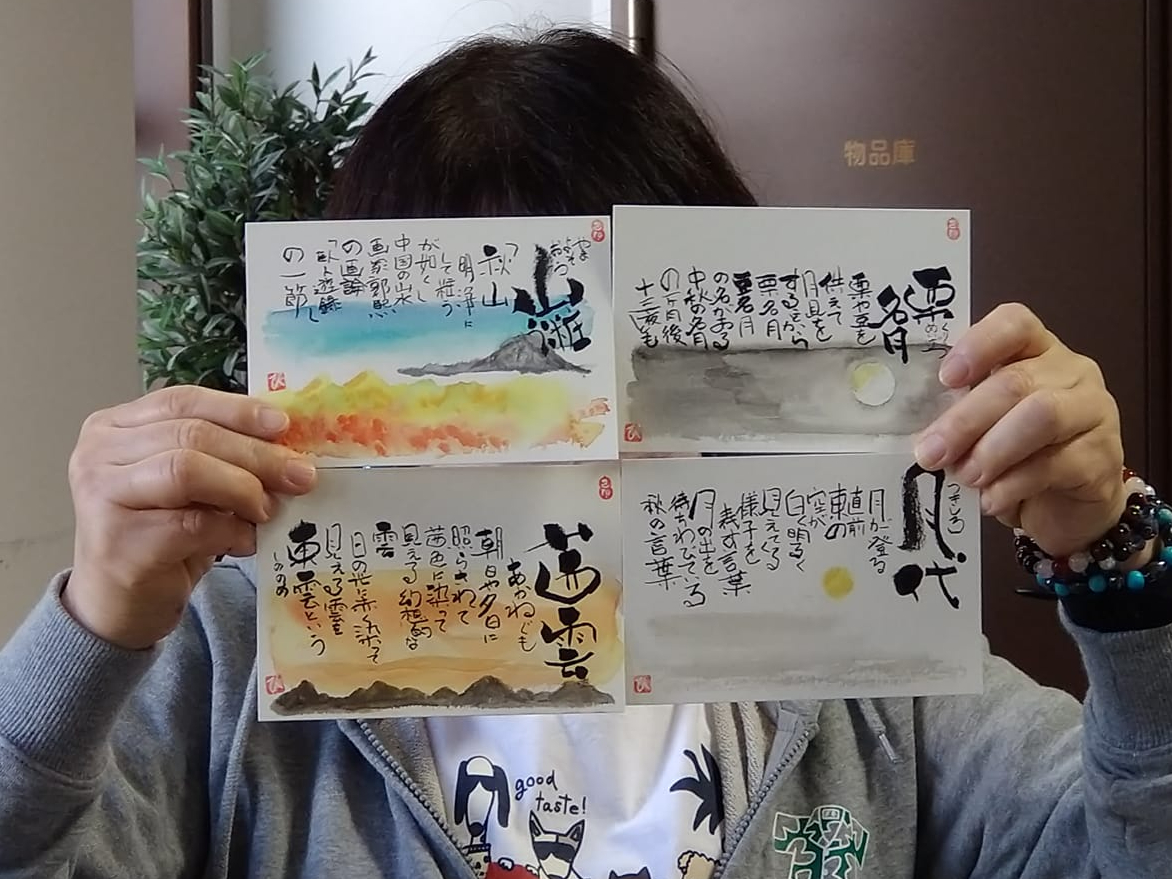 山粧
やま
よそおう
「秋山
明浄に
して粧う
が如くし
中国の山水
画家郭熙
の画論
「臥遊録」
の一節
栗名月
栗や豆を
供えて
月見を
するから
栗名月
豆名月
の名がある
中秋の名月
の一ヶ月後
十三夜も
茜雲
あかねぐも
朝日や夕日に
照らされて
茜色に染って
見える幻想的な
雲
日の光に赤く染って
見える雲を
東雲という
しののめ
月代
つきしろ
月が登る
直前
東の
空が
白く明るく
見えてくる
様子を
表す言葉
月の出を
待ちわびている
秋の言葉
物品庫
good
taste!